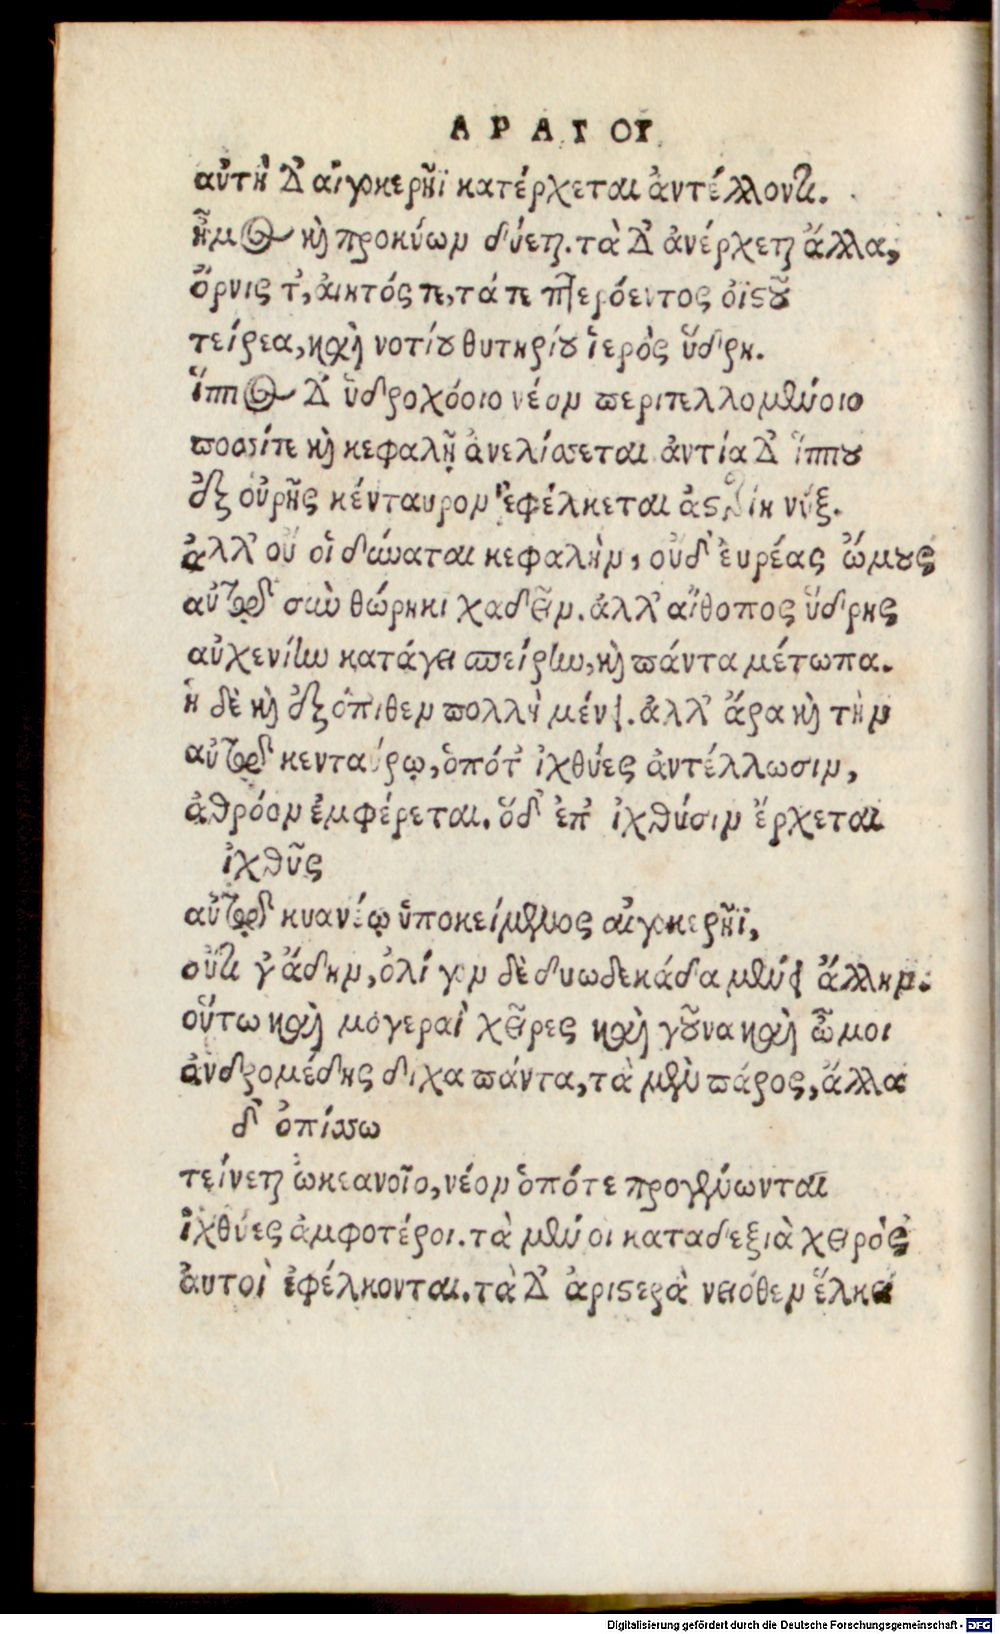 ΑΡΑΤΟΥ
αὐτὴ δ' αἰγοκερῆϊ κατέρχεται ἀντέλλοντι.
ἦμος καὶ προκύων δύεται. τὰ δ' ἀνέρχεται ἄλλα,
ὄρνις τ', αἰητός τε, τά τε πτερόεντος ὀϊστοῦ
τείρεα, καὶ νοτίου θυτηρίου ἱερὸς ὕδρη.
ἵππος δ' ὑδροχόοιο νέον περιτελλομένοιο
ποσσίτε καὶ κεφαλῇ ἀνελίσσεται ἀντία δ' ἵππου
ἐξ οὐρῆς κένταυρον ἐφέλκεται ἀστερίη νύξ.
ἀλλ' οὔ οἱ δύναται κεφαλὴν, οὐδ' εὐρέας ὤμους
αὐτῷ σὺν θώρηκι χαδεῖν. ἀλλ' αἴθοπος ὕδρης
αὐχενίην κατάγει σπείρην, καὶ πάντα μέτωπα.
ἡ δὲ καὶ ἐξόπιθεν πολλὴ μένει. ἀλλ' ἄρα καὶ τὴν
αὐτῷ κενταύρῳ, ὁπότ' ἰχθύες ἀντέλλωσιν,
ἀθρόον ἐμφέρεται. ὅδ' ἐπ' ἰχθύσιν ἔρχεται
ἰχθῦς
αὐτῷ κυανέῳ ὑποκείμενος αἰγοκερῆϊ,
οὔτι γ' ἄδην, ὀλίγον δὲ δυωδεκάδα μένει ἄλλην.
οὕτω καὶ μογεραὶ χεῖρες καὶ γοῦνα καὶ ὦμοι
ἀνδρομέδης δίχα πάντα, τὰ μὲν πάρος, ἄλλα
δ' ὀπίσσω
τείνεται ὠκεανοῖο, νέον ὁπότε προγένωνται
ἰχθύες ἀμφοτέροι. τὰ μέν οι καταδεξιὰ χειρὸς
ἀυτοὶ ἐφέλκονται. τὰ δ' ἀριστερὰ νειόθεν ἕλκει
Digitalisierung gefördert durch die Deutsche Forschungsgemeinschaft - DFG